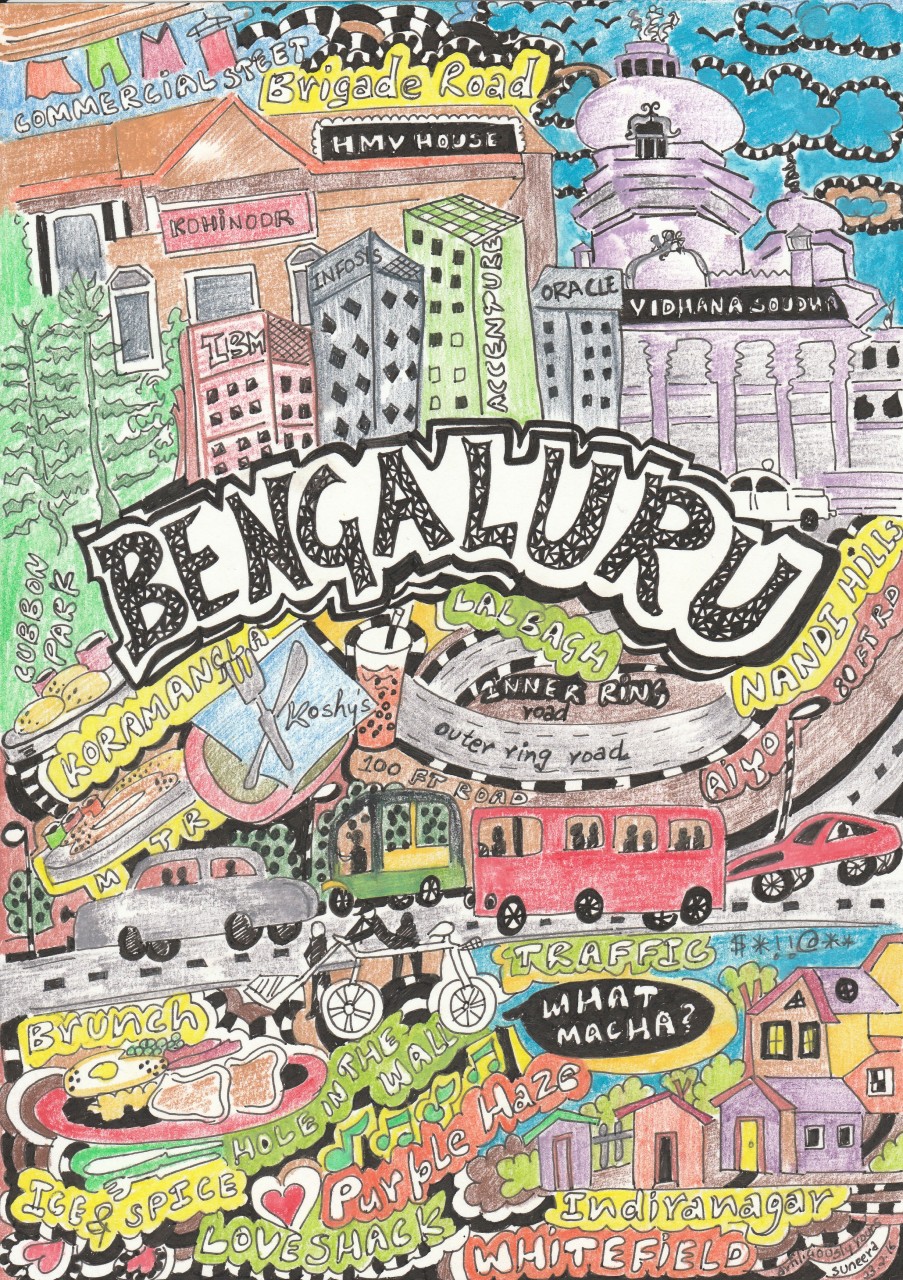 COMMERCIAL STEET
Brigade Road
HMV HOUSE
KOHINOOR
INFOSYS
ACCENTURE
ORACLE
VIDHANA SOUDHA
IBM
BENGALURU
CUBBON
PARK
LALBAGH
NANDI HILLS
80 FT RD
KORAMANGLA
Koshy's
INNER RING
road
outer ring road
AiYO
100 FT ROAD
MTR
TRAFFIC $*!!@**
WHAT
MACHA?
Brunch
HOLE IN THE
WALL
Purple Haze
ICE & SPICE
LOVESHACK
Indiranagar
WHITEFIELD
suneera